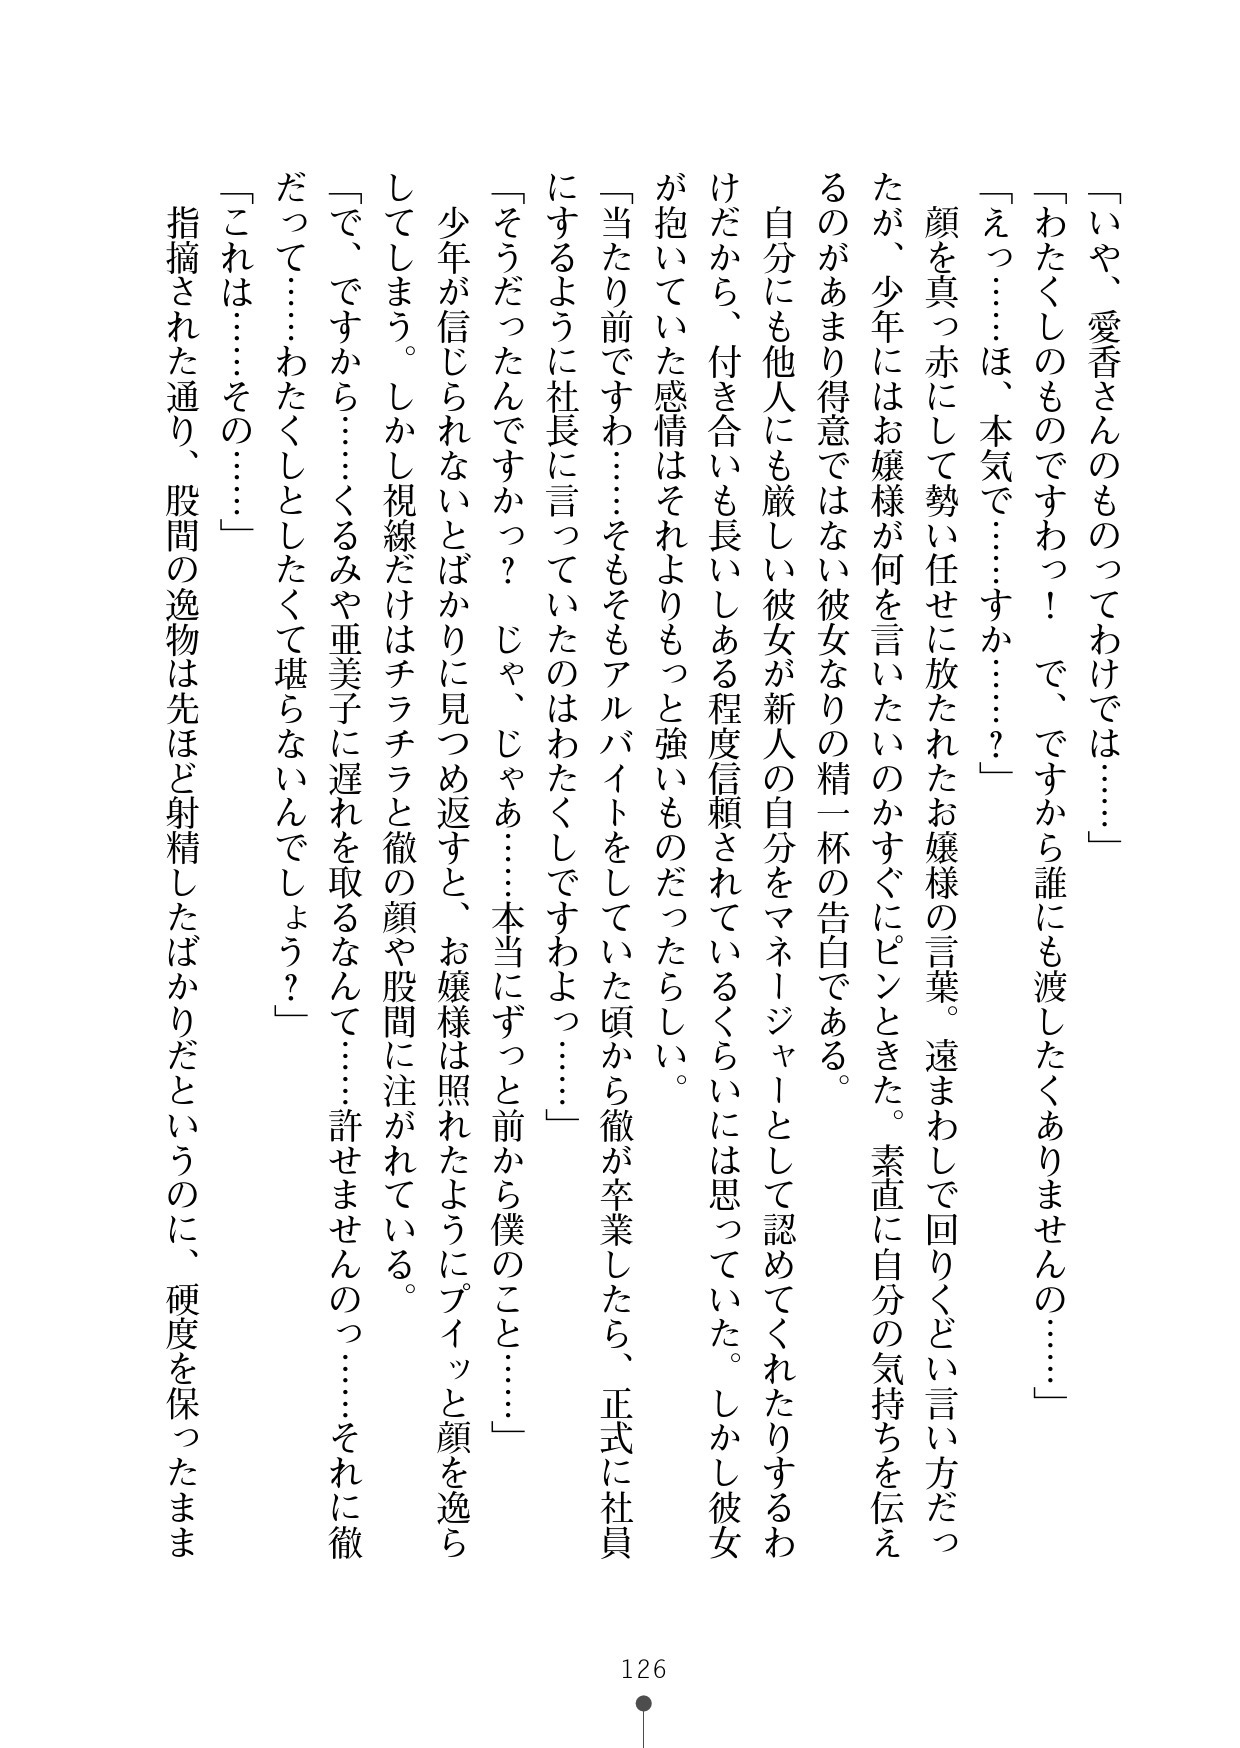 「いや、愛香さんのものってわけでは……」
「わたくしのものですわっ！　で、ですから誰にも渡したくありませんの……」
「えっ……ほ、本気で……すか……？」
　顔を真っ赤にして勢い任せに放たれたお嬢様の言葉。遠まわしで回りくどい言い方だっ
たが、少年にはお嬢様が何を言いたいのかすぐにピンときた。素直に自分の気持ちを伝え
るのがあまり得意ではない彼女なりの精一杯の告白である。
　自分にも他人にも厳しい彼女が新人の自分をマネージャーとして認めてくれたりするわ
けだから、付き合いも長いしある程度信頼されているくらいには思っていた。しかし彼女
が抱いていた感情はそれよりもっと強いものだったらしい。
「当たり前ですわ……そもそもアルバイトをしていた頃から徹が卒業したら、正式に社員
にするように社長に言っていたのはわたくしですわよっ……」
「そうだったんですかっ？　じゃ、じゃあ……本当にずっと前から僕のこと……」
　少年が信じられないとばかりに見つめ返すと、お嬢様は照れたようにプイッと顔を逸ら
してしまう。しかし視線だけはチラチラと徹の顔や股間に注がれている。
「で、ですから……くるみや亜美子に遅れを取るなんて……許せませんのっ……それに徹
だって……わたくしとしたくて堪らないんでしょう？」
「これは……その……」
　指摘された通り、股間の逸物は先ほど射精したばかりだというのに、硬度を保ったまま
126